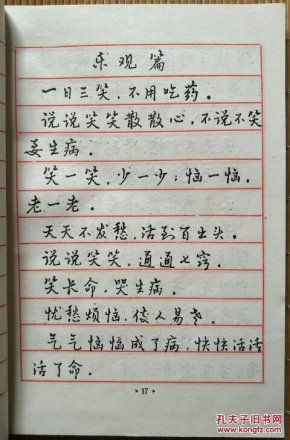 乐观篇
一日三笑，不用吃药。
说说笑笑散散心，不说不笑
要生病。
笑一笑，少一少；恼一恼，
老一老。
天天不发愁，活到百出头。
说说笑笑，通通七窍。
笑长命，哭生病。
忧愁烦恼，使人易老。
气气恼恼成了病，快快活活
活了命。
17
孔夫子旧书网